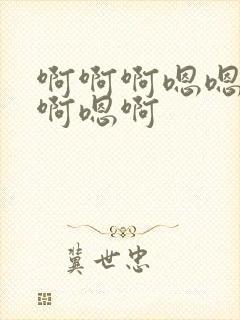 啊啊啊嗯嗯
啊嗯啊
冀世忠